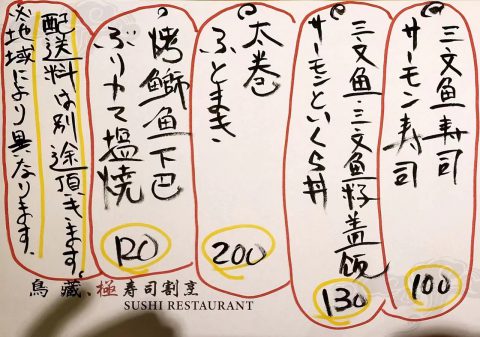 三文魚寿司
サーモン寿司
100
三文魚・三文魚籽蓋飯
サーモンといくら丼
130
太巻
ふとまき
200
烤鰤魚下巴
ぶりカマ塩焼
120
配送料は別途頂きます。
※地域により異なります。
鳥藏、極寿司割烹
SUSHI RESTAURANT